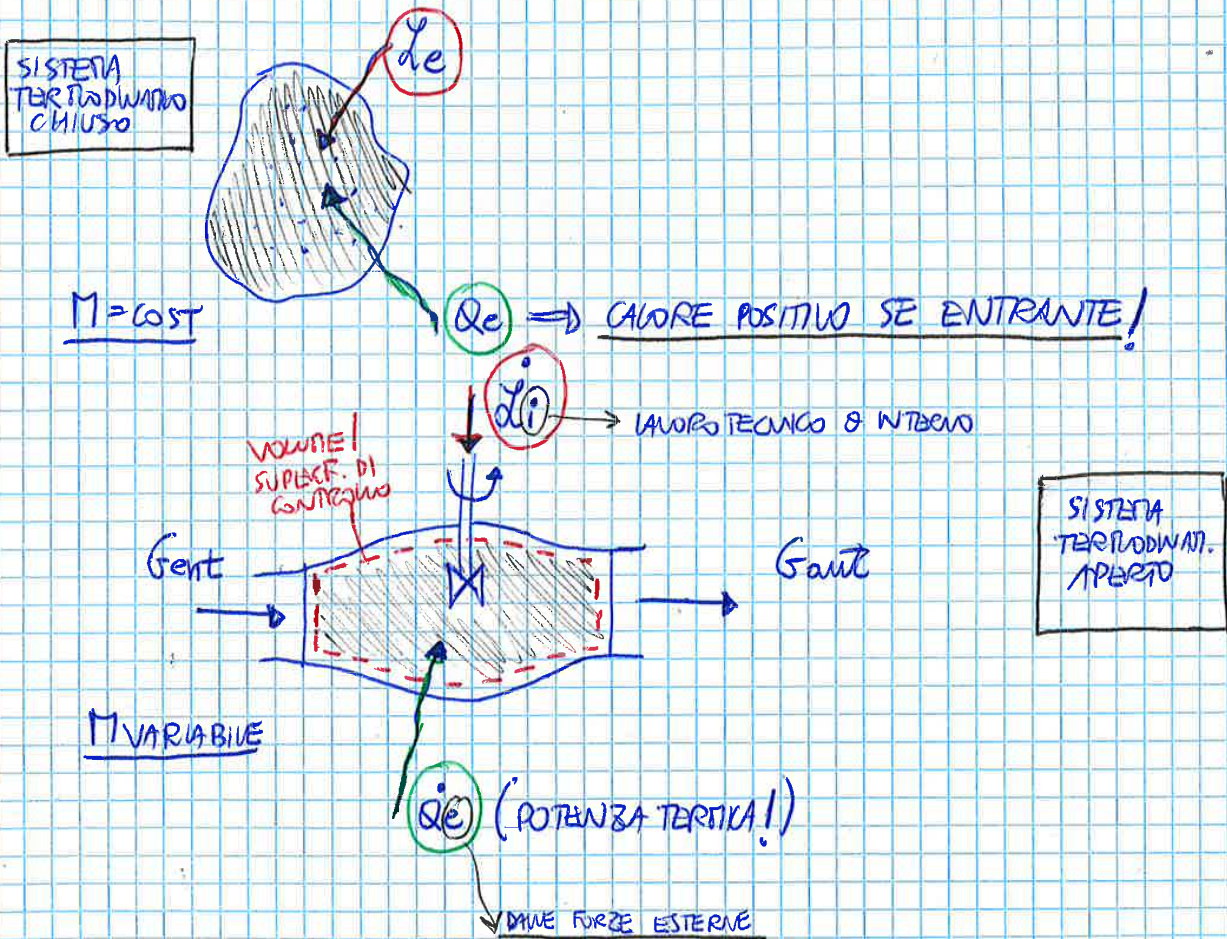 SISTEMA
TERMODINAMICO
CHIUSO
Le
M = COST
Qe ⇒ CALORE POSITIVO SE ENTRANTE!
L̇i → LAVORO TECNICO O INTERNO
VOLUME/
SUPERF. DI
CONTROLLO
Gent
Gout
SISTEMA
TERMODINAM.
APERTO
M VARIABILE
Q̇e (POTENZA TERMICA!)
DALLE FORZE ESTERNE